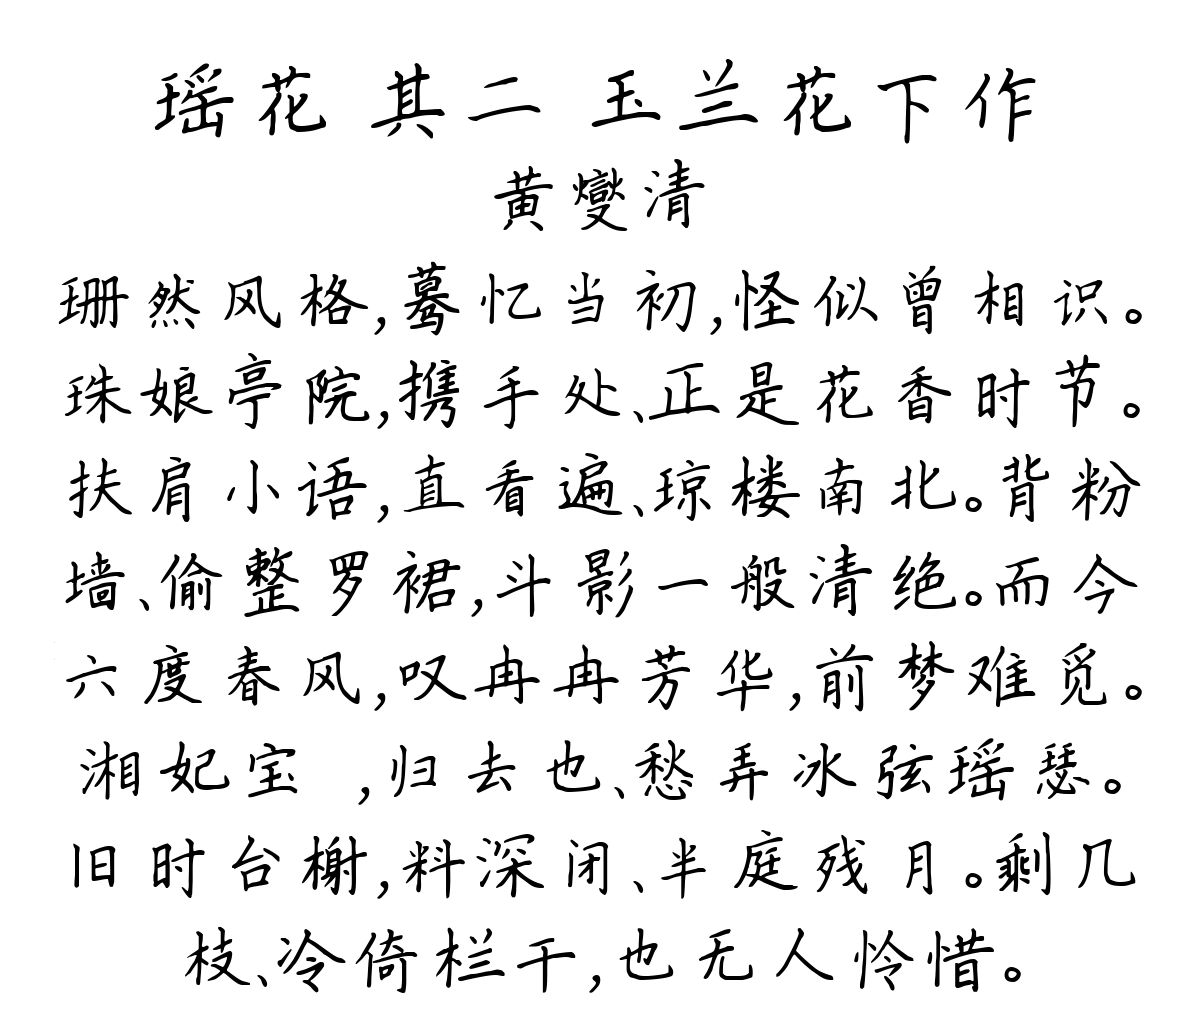 瑶花 其二 玉兰花下作
黄燮清
珊然风格,蓦忆当初,怪似曾相识。
珠娘亭院,携手处、正是花香时节。
扶肩小语,直看遍、琼楼南北。背粉
墙、偷整罗裙,斗影一般清绝。而今
六度春风,叹冉冉芳华,前梦难觅。
湘妃宝 ,归去也、愁弄冰弦瑶瑟。
旧时台榭,料深闭、半庭残月。剩几
枝、冷倚栏干,也无人怜惜。